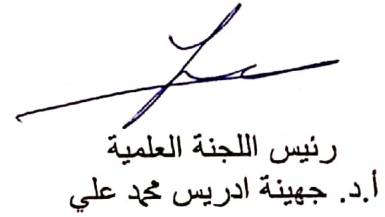 رئيس اللجنة العلمية
أ.د. جهينة ادريس محمد علي